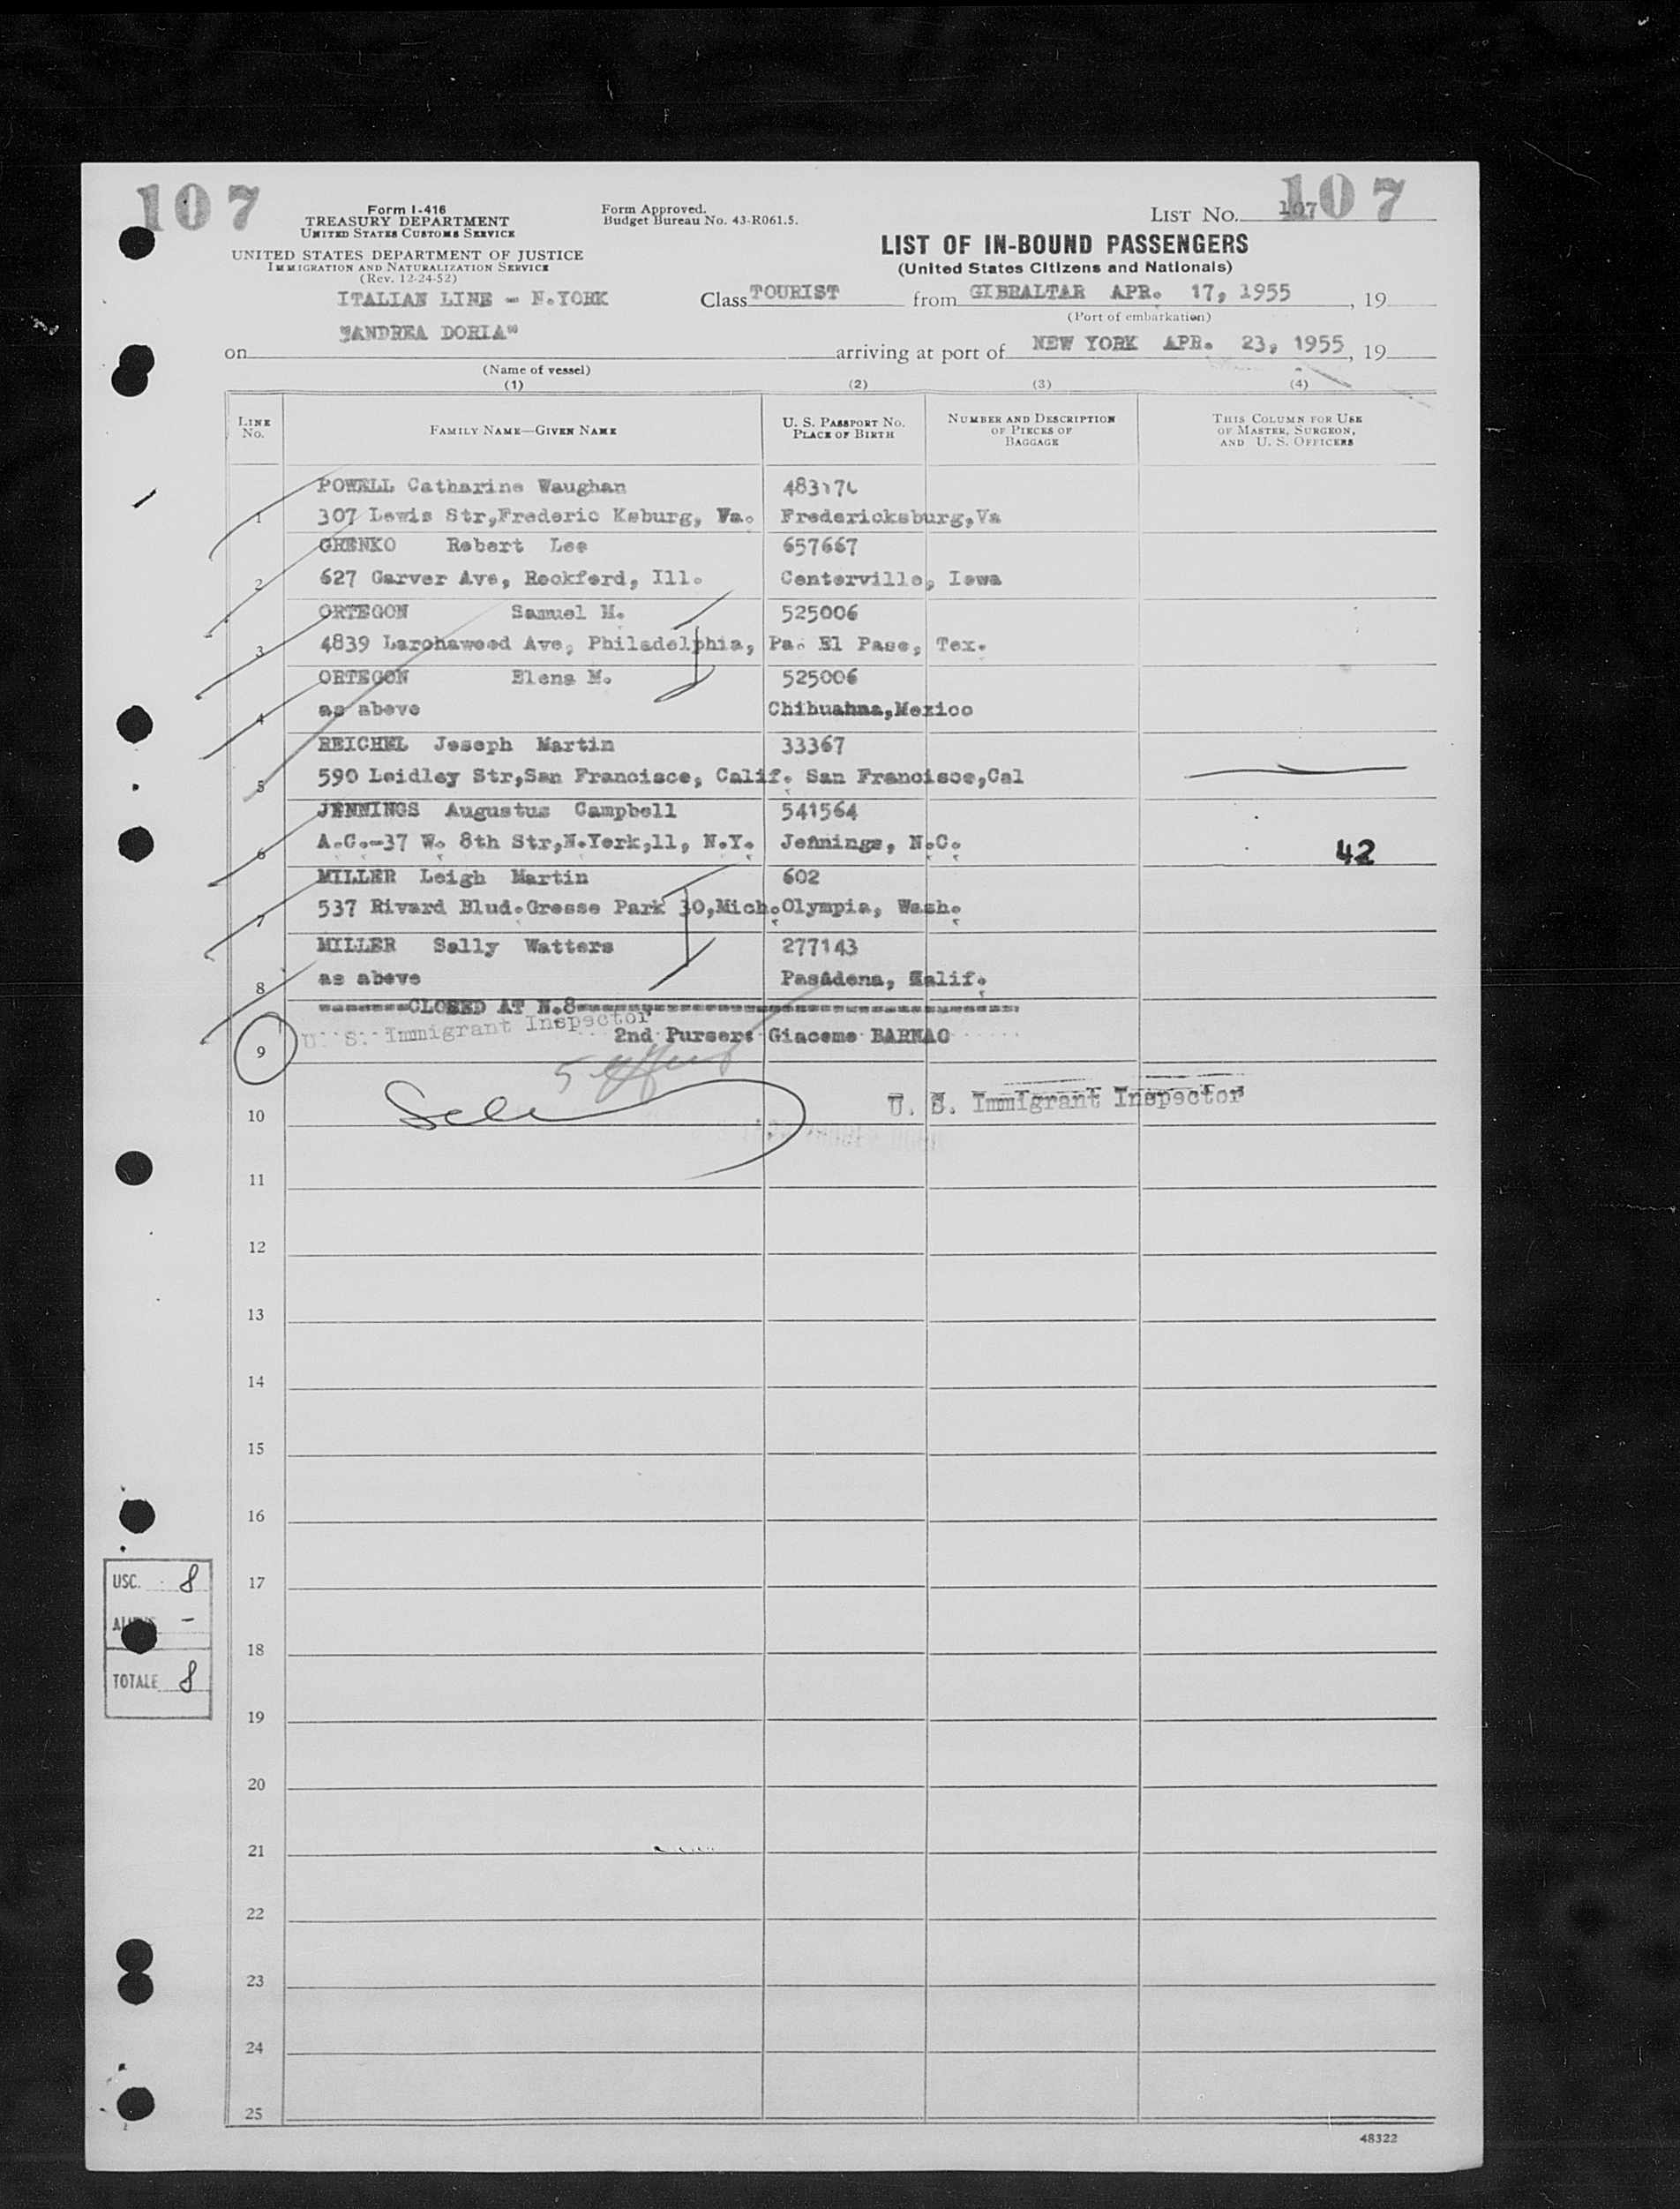 107
107
Form I-416
TREASURY DEPARTMENT
UNITED STATES CUSTOMS SERVICE
UNITED STATES DEPARTMENT OF JUSTICE
IMMIGRATION AND NATURALIZATION SERVICE
(Rev. 12-24-52)
Form Approved.
Budget Bureau No. 43-R061.5.
LIST No. 107
LIST OF IN-BOUND PASSENGERS
(United States Citizens and Nationals)
ITALIAN LINE - N.YORK
Class TOURIST from GIBRALTAR APR. 17, 1955, 19
(Port of embarkation)
"ANDREA DORIA"
on arriving at port of NEW YORK APR. 23, 1955, 19
(Name of vessel)
(1) (2) (3) (4)
LINE No. FAMILY NAME—GIVEN NAME U. S. PASSPORT NO. PLACE OF BIRTH NUMBER AND DESCRIPTION OF PIECES OF BAGGAGE THIS COLUMN FOR USE OF MASTER, SURGEON, AND U. S. OFFICERS
POWELL Catharine Vaughan
1 307 Lewis Str,Frederic Ksburg, Va. Fredericksburg,Va
GRENKO Robert Lee 657667
2 627 Garver Ave, Rockford, Ill. Centerville, Iowa
ORTEGON Samuel M. 525006
3 4839 Larchawood Ave, Philadelphia, Pa. El Paso, Tex.
ORTEGON Elena M. 525006
4 as above Chihuahua,Mexico
REICHEL Joseph Martin 33367
5 590 Leidley Str,San Francisco, Calif. San Francisco,Cal
JENNINGS Augustus Campbell 541564
6 A.G.-37 W. 8th Str,N.York,11, N.Y. Jennings, N.C. 42
MILLER Leigh Martin 602
7 537 Rivard Blud.Grosse Park 30,Mich. Olympia, Wash.
MILLER Sally Watters 277143
8 as above Pasadena, Calif.
-------CLOSED AT N.8-------
U. S. Immigrant Inspector
9 2nd Purser: Giacomo BARNAO
10 U. S. Immigrant Inspector
11
12
13
14
15
16
USC. 8
17
ALIENS -
18
TOTALE 8
19
20
21
22
23
24
25
48322